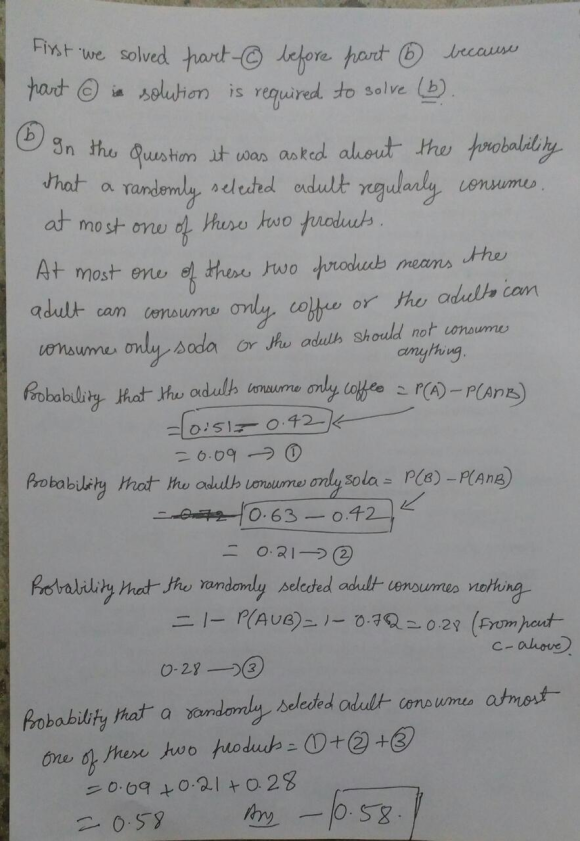 First we solved part-ⓒ before part ⓑ because
part ⓒ is solution is required to solve (b).
ⓑ In the Question it was asked about the probability
that a randomly selected adult regularly consumes
at most one of these two products.
At most one of these two products means the
adult can consume only coffee or the adults can
consume only soda or the adults should not consume
anything.
Probability that the adults consume only coffee = P(A) - P(A∩B)
= 0.51 - 0.42
= 0.09 → ①
Probability that the adults consume only soda = P(B) - P(A∩B)
= 0.63 - 0.42
= 0.21 → ②
Probability that the randomly selected adult consumes nothing
= 1 - P(A∪B) = 1 - 0.72 = 0.28 (From part
c-above)
0.28 → ③
Probability that a randomly selected adult consumes atmost
one of these two products = ① + ② + ③
= 0.09 + 0.21 + 0.28
= 0.58 Ans - 0.58.